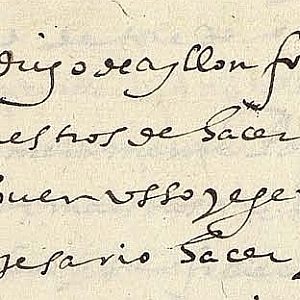 drigo de ayllon fr
estros de hacer
buen usso y ege
çesario hacer y